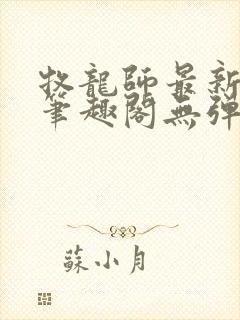 牧龍師最新
筆趣閣無彈
蘇小月